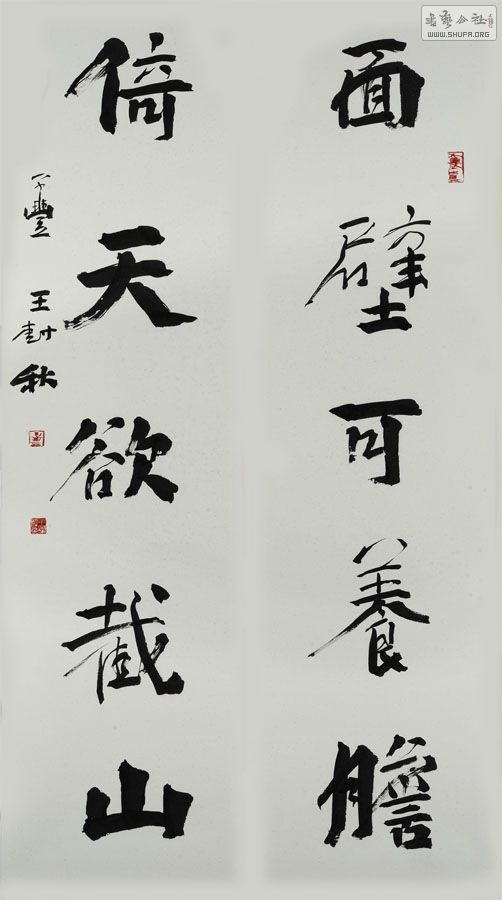 書藝公社
WWW.SHUFA.ORG
面壁可養膽
倚天欲截山
豐 王封秋